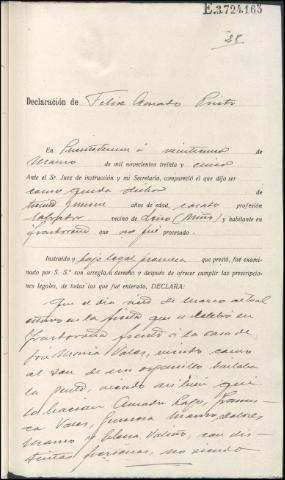 E.3.724.163
28
Declaración de Felix Amado Prieto
En Puentedeume á veintiuno de
Marzo de mil novecientos treinta y cinco
Ante el Sr. Juez de instrucción y mi Secretaria, compareció el que dijo ser
como queda dicho de
treinta años de edad, casado profesión
labrador vecino de (Miño) y habitante en
que no fué procesado.
Instruido y bajo legal promesa que prestó, fué examinado
por S. Sª con arreglo a derecho y después de ofrecer cumplir las prescripciones
legales, de todos las que fué enterado, DECLARA:
Que el día siete de marzo actual
estuvo en la fiesta que se celebró en
frente á la casa de
Jose Maria Valas, viendo como
al son de un organillo bailaba
la gente, viendo asi bien que
lo hacian Amador Lago, Francisca
Valas, Manso, Dolores
Manso y Elena Valiño, con distintas
personas, no viendo